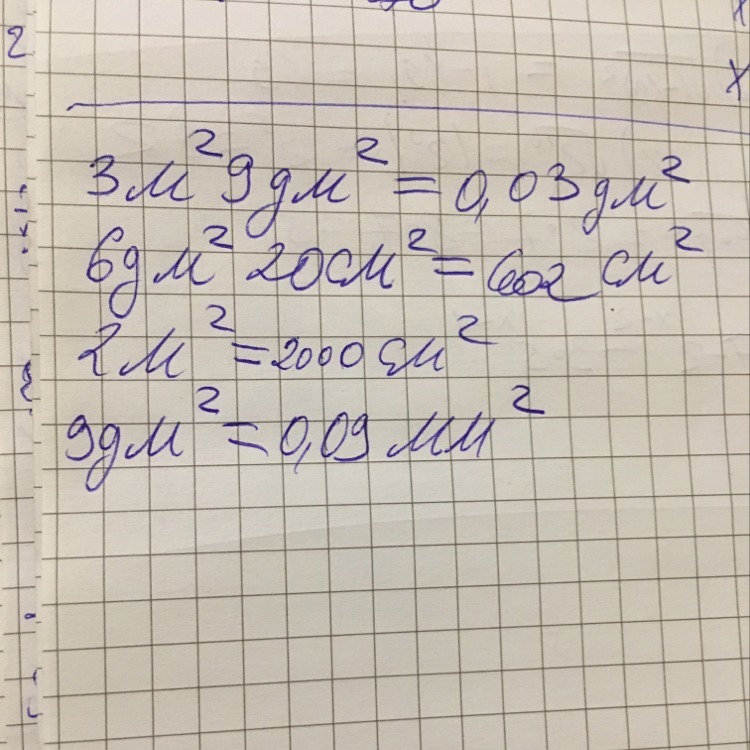 2
3м² 9дм² = 0,03дм²
6дм² 20см² = 602 см²
2м² = 2000 см²
9дм² = 0,09 мм²